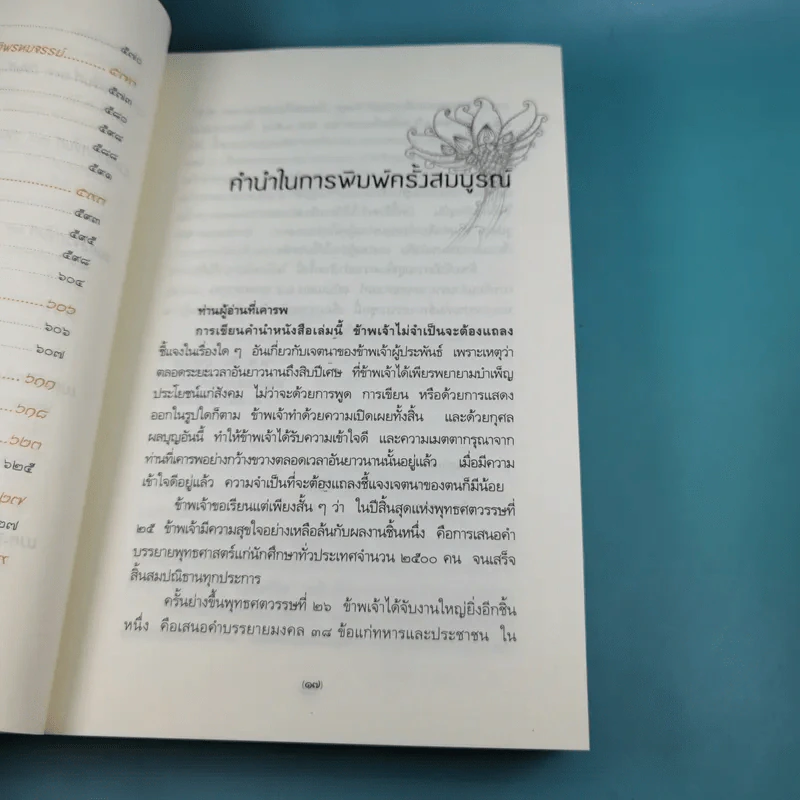 ๕๗๐
๕๗๓
๕๘๐
๕๘๘
๕๙๑
๕๙๓
๕๙๕
๕๙๘
๖๐๔
๖๐๕
๖๐๖
๖๐๗
๖๑๑
๖๑๘
๖๒๓
๖๒๕
คำนำในการพิมพ์ครั้งสมบูรณ์
ท่านผู้อ่านที่เคารพ
การเขียนคำนำหนังสือเล่มนี้ ข้าพเจ้าไม่จำเป็นจะต้องแถลง
ชี้แจงในเรื่องใด ๆ อันเกี่ยวกับเจตนาของข้าพเจ้าผู้ประพันธ์ เพราะเหตุว่า
ตลอดระยะเวลาอันยาวนานถึงสิบปีเศษ ที่ข้าพเจ้าได้เพียรพยายามบำเพ็ญ
ประโยชน์แก่สังคม ไม่ว่าจะด้วยการพูด การเขียน หรือด้วยการแสดง
ออกในรูปใดก็ตาม ข้าพเจ้าทำด้วยความเปิดเผยทั้งสิ้น และด้วยกุศล
ผลบุญอันนี้ ทำให้ข้าพเจ้าได้รับความเข้าใจดี และความเมตตากรุณาจาก
ท่านที่เคารพอย่างกว้างขวางตลอดเวลาอันยาวนานนั้นอยู่แล้ว เมื่อมีความ
เข้าใจดีอยู่แล้ว ความจำเป็นที่จะต้องแถลงชี้แจงเจตนาของตนก็มีน้อย
ข้าพเจ้าขอเรียนแต่เพียงสั้น ๆ ว่า ในปีสิ้นสุดแห่งพุทธศตวรรษที่
๒๕ ข้าพเจ้ามีความสุขใจอย่างเหลือล้นกับผลงานชิ้นหนึ่ง คือการเสนอคำ
บรรยายพุทธศาสตร์แก่นักศึกษาทั่วประเทศจำนวน ๒๕๐๐ คน จนเสร็จ
สิ้นสมปณิธานทุกประการ
ครั้นย่างขึ้นพุทธศตวรรษที่ ๒๖ ข้าพเจ้าได้จับงานใหญ่ยิ่งอีกชิ้น
หนึ่ง คือเสนอคำบรรยายมงคล ๓๘ ข้อแก่ทหารและประชาชน ใน
(๑๗)